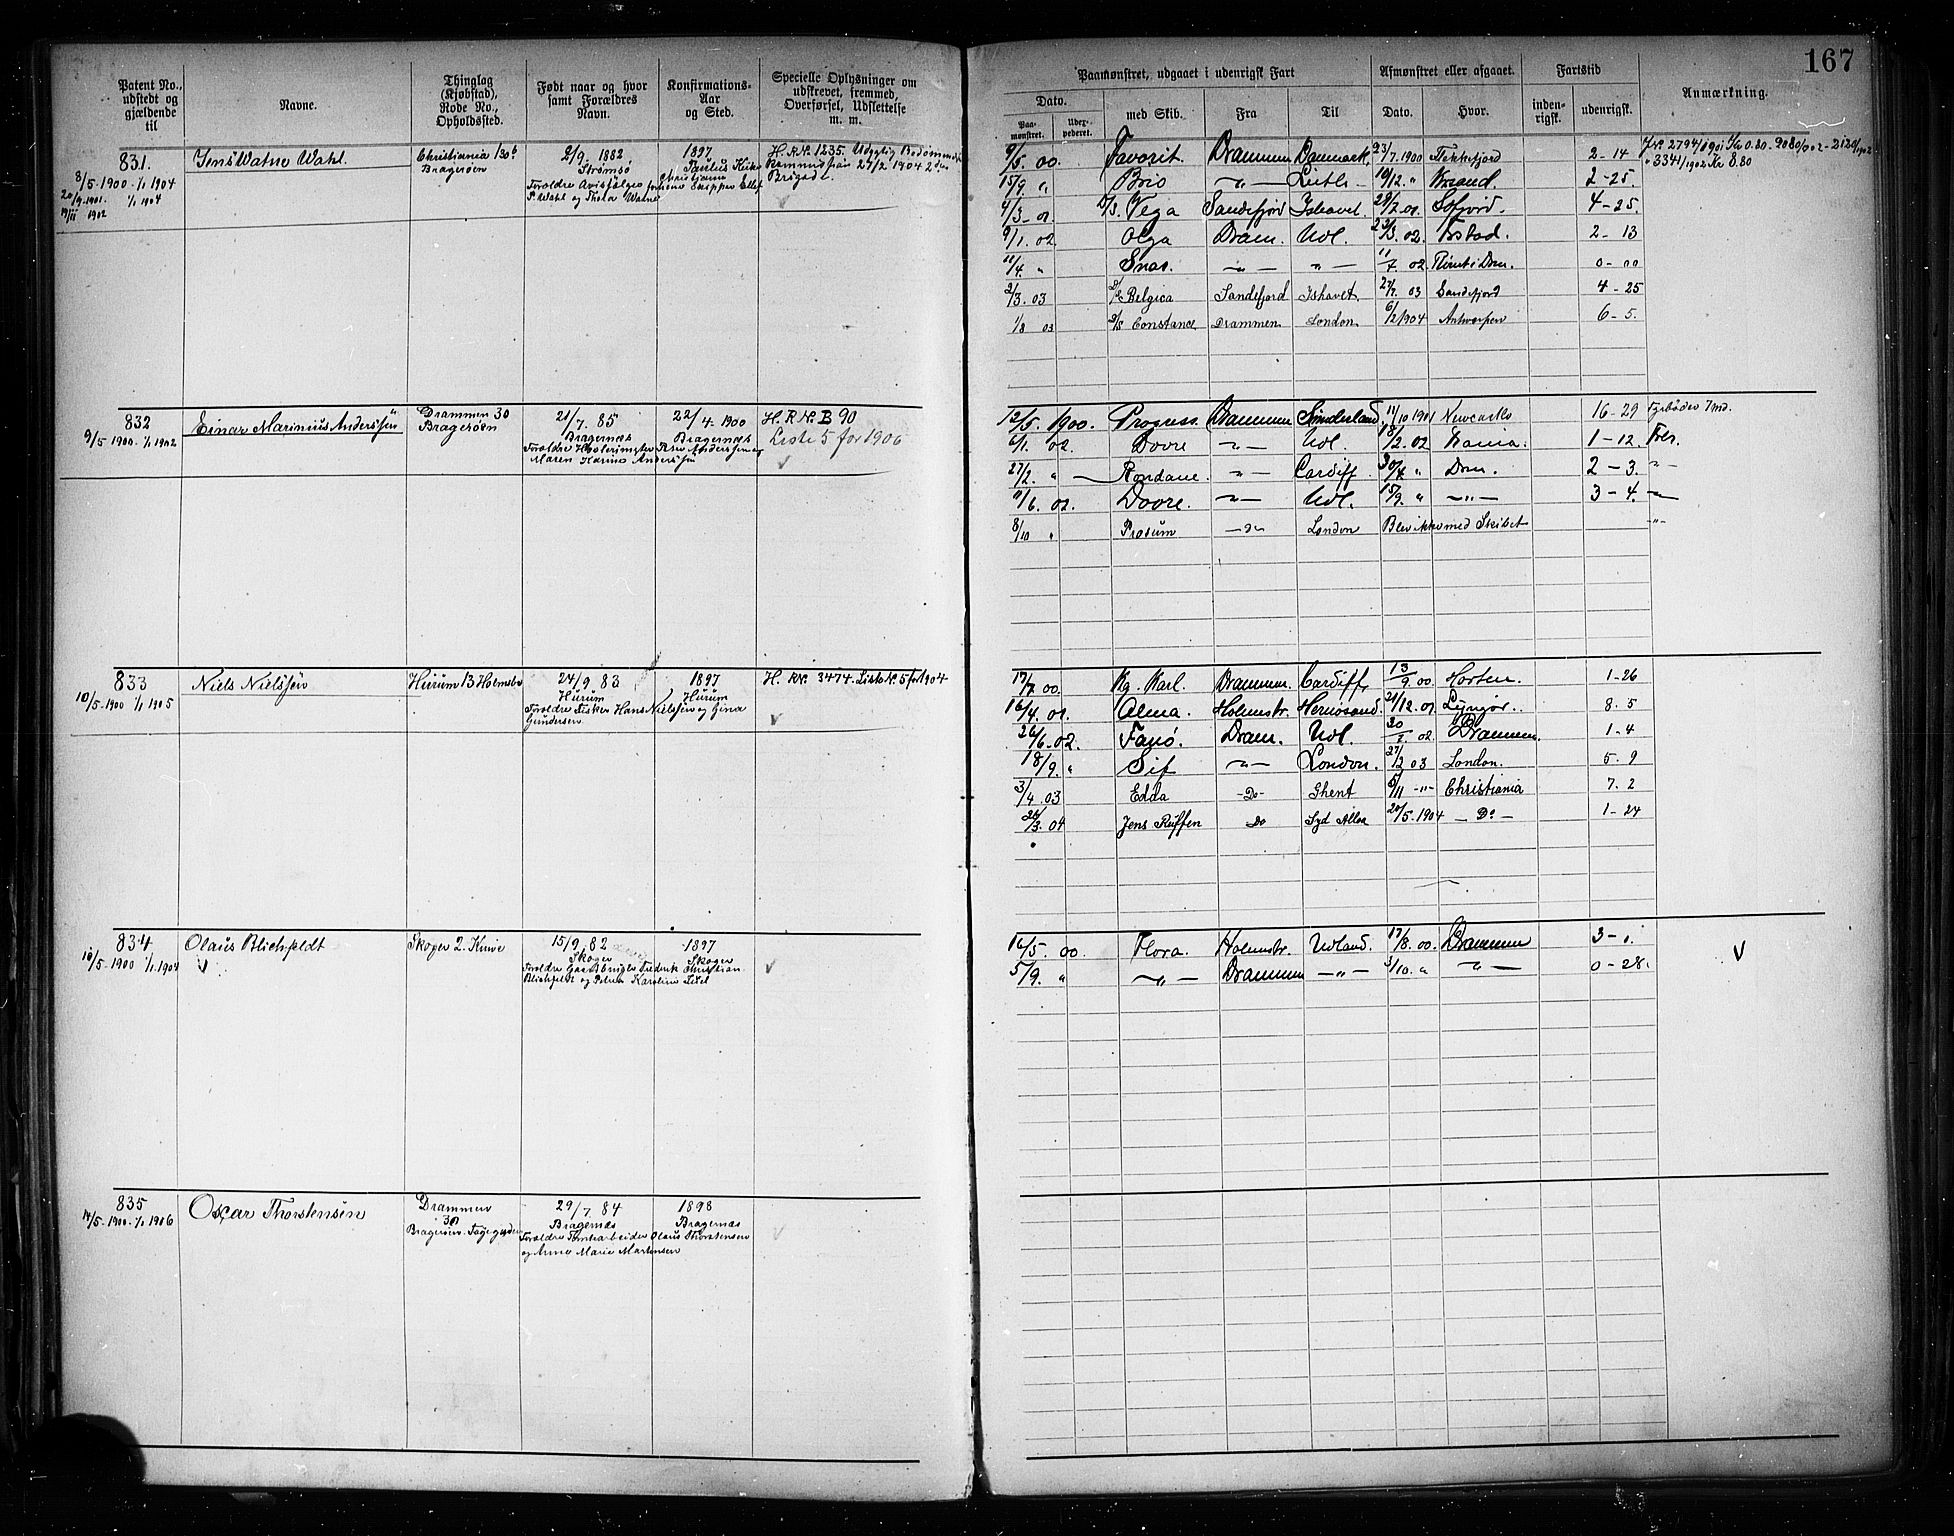 167
Patent No., udstedt og gjældende til
Navne.
Thinglag (Kjøbstad), Rode No., Opholdssted.
Født naar og hvor samt Forældres Navn.
Konfirmations-Aar og Sted.
Specielle Oplysninger om udskrevet, fremmed, Overførsel, Udslettelse m. m.
Paamønstret, udgaaet i udenrigsk Fart
Afmønstret eller afgaaet.
Fartstid
Anmærkning.
Dato.
Paa-mønstret.
Udex-pederet.
med Skib.
Fra
Til
Dato.
Hvor.
inden-rigsk.
udenrigsk.
831.
8/5-1900 - 1/1 1904
1/1 1904
1902
Jens Watne Wahl.
Christiania 130b
Bragerøen
2/9. 1882
Strømsø
Forældre
P. Wahl og Thola Watne
1897
Paulus Kirke
Christiania
H. RN. 1235. Udygtig Bedømmelse
27/2 1904 2den
Brigade.
9/5. 00. Favorit. Drammen Danmark 23/7. 1900 Flekkefjord 2-14
15/9 " Brio -"- Leith - 10/12. " 2-25.
4/3-01 D/S. Vega Sandefjord Ishavet. 29/7. 01. 4-25.
9/1. 02. Olga Dram. Udl. 23/3. 02. 2-13
11/4. " Snar. -"- -"- 11/7 02 Rømt i Drm. 0-00
2/3. 03 D/S Belgica Sandefjord Ishavet. 27/7. 03 Sandefjord 4-25
1/8 03 D/S Constance Drammen London 6/2 1904 Antwerpen 6-5.
832
9/5-1900-1/1 1902
Einar Marinius Anderssen
Drammen 30
Bragerøen
21/7. 85
Bragernæs
Forældre
Maren Karine Anderssen
22/4. 1900
Bragernæs
H. RN. B 90
Liste 5 for 1906
12/5. 1900. Progress. Drammen Sunderland. 11/10 1901 Newcastle 16-29 Fyrbøder 7 Md.
6/1. 02. Dovre -"- Udl. 18/2. 02 1-12. Fbr.
27/2. " Rondane. -"- Cardiff. 30/4. " Drm. 2-3. -"-
11/6. 02. Dovre. -"- Udl. 15/9. " -"- 3-4. -"-
8/10 " Prosum -"- London Blev ikke med Skibet -"-
833
10/5-1900 1/1 1905
Niels Nielssen
Hurum 13 Holmsbo
24/9 83
Hurum
Forældre Fisker Hans Nielssen og Gina
Gundersen
1897
Hurum
H. RN. 3474. Liste N. 5 for 1904
17/7. 00. Kg. Karl. Drammen. Cardiff. 13/9. 00. Horten. 1-26
16/4. 01. Alma. Holmstr. Hernøsand. 21/12. 01 Lyngør. 8.5
26/6. 02. Fanø. Dram. Udl. 20/8. 02. Drammen. 1-4
18/9. " Sif -"- London. 27/12 03 London. 5.9
3/4. 03 Edda -Do- Ghent 5/11 -"- Christiania 7.2
26/3. 04 Jens Do 20/5. 1904 - Do - 1-24
834
10/5-1900 1/1. 1904
Olaus Blichfeldt
Skoger 2.
15/9. 82
Skoger
Forældre
Fredrik Christian
Blichfeldt og Karoline
1897
Skoger
16/5. 00. Flora. Holmstr. Udland. 17/8. 00. Drammen 3-1.
5/9. " -"- Drammen -"- 3/10. " -"- 0-28.
835
14/5-1900-1/1 1906
Oscar Thorstensen
Drammen
30
Bragerøen
29/7. 84
Bragernæs
Forældre Tomtearbeider Olaus Thorstensen
og Anne Marie Martinsen
1898
Bragernæs